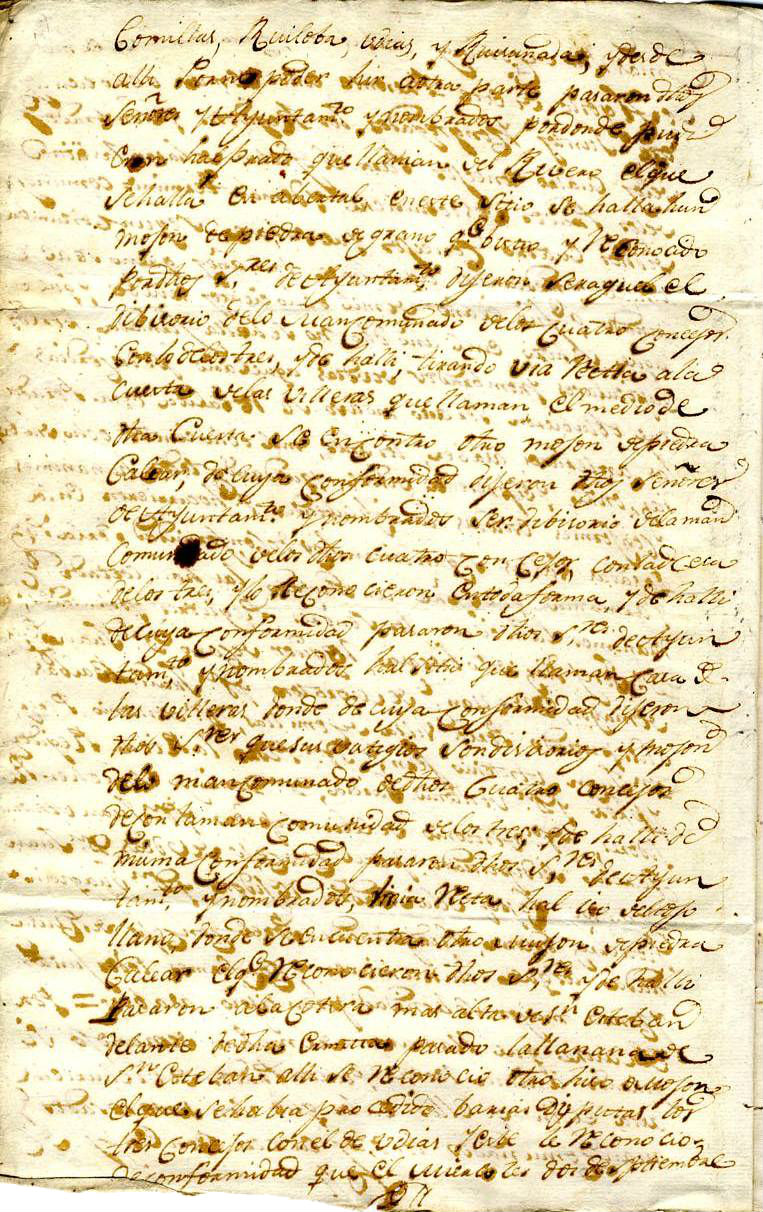 Comillas, Ruiloba, vdias, y Ruisenada; ydesde
alli Sorno poder hir aotra parte pasaron dhos
Señores de Ayuntamto ynombrados pordonde
hal prado que llaman del Ribero elque
Sehalla en abertal, eneste sitio se halla hun
moson de piedra de grano qe bisto y Reconocido
pordhos Sres de Ayuntamto dijeron Seraquel el
dibisorio delo Mancomunado delos Cuatro Concejos
Conlo delos tres, yde halli, tirando via Recta ala
Cuesta delas Villeras que llaman, el medio de
dha Cuesta Se encontro otro moson depiedra
Calear, de cuya Conformidad dijeron dhos Señores
de Ayuntamto ynombrados Ser dibisorio dela man
Comunidado delos dhos cuatro Concejos, con
delos tres, ylo Reconocieron entoda forma, yde halli
de cuya conformidad pasaron dhos Sres de Ayun
tamto ynombrados hal sitio que llaman Cara de
las Villeras donde de cuya Conformidad dijeron
dhos Sres que sus batigios Sondisorios y moson
delo mancomunado dedhos Cuatro Concejos
decon laman Comunidad delos tres, yde halli de
misma Conformidad pasaron dhos Sres de Ayun
tamto ynombrados, Recta hal
llana, donde Se encuentra otro Moson depiedra
Calear elqe Reconocieron dhos Sres yde halli
Pasaron ala Cotera mas alta de Sn Esteban
delante dedha pasado lallanana de
Sn Esteban alli Se Reconocio otro hito o Moson
elque Sehabia procedido barias Disputas los
tres Concejos Con el de Vdias Reconocio
de conformidad que el Miercoles dos de Septiembre